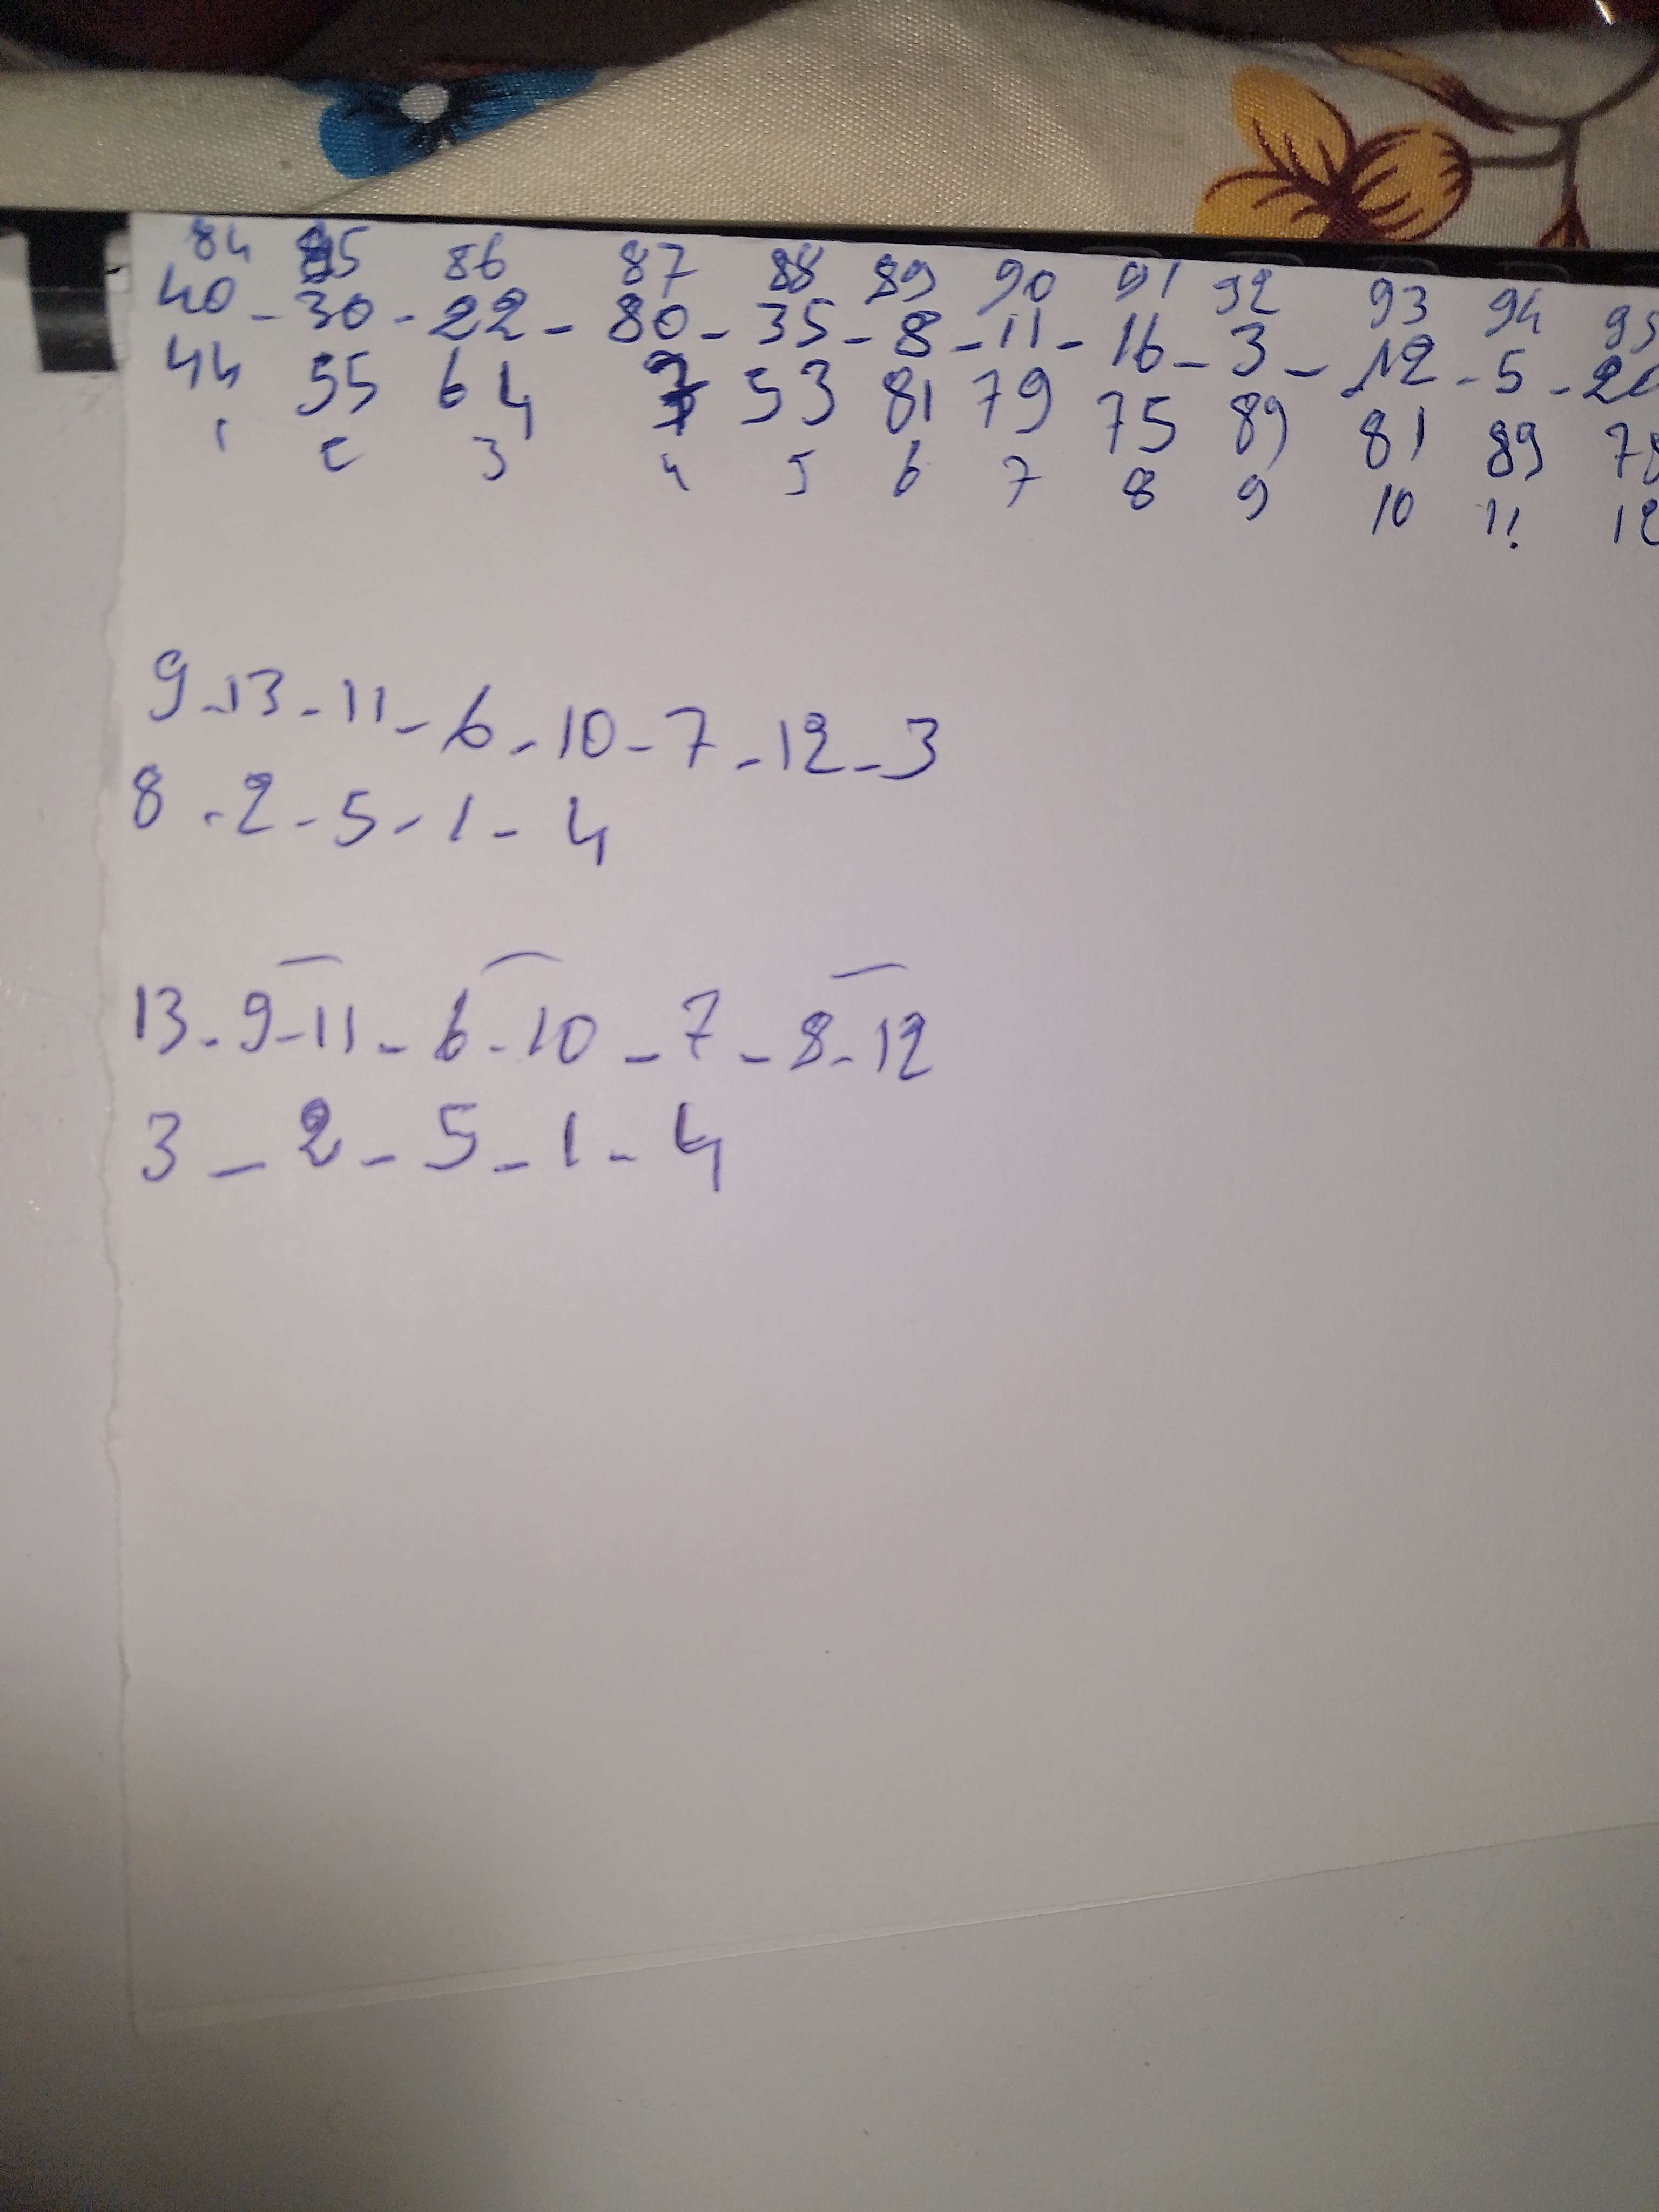 84 85 86 87 88 89 90 91 92 93 94 95
40 - 30 - 22 - 80 - 35 - 8 - 11 - 16 - 3 - 12 - 5 -
44 55 64 7 53 81 79 75 89 81 89
1 2 3 4 5 6 7 8 9 10 11 12
9 - 13 - 11 - 6 - 10 - 7 - 12 - 3
8 - 2 - 5 - 1 - 4
13 - 9 - 11 - 6 - 10 - 7 - 8 - 12
3 - 2 - 5 - 1 - 4